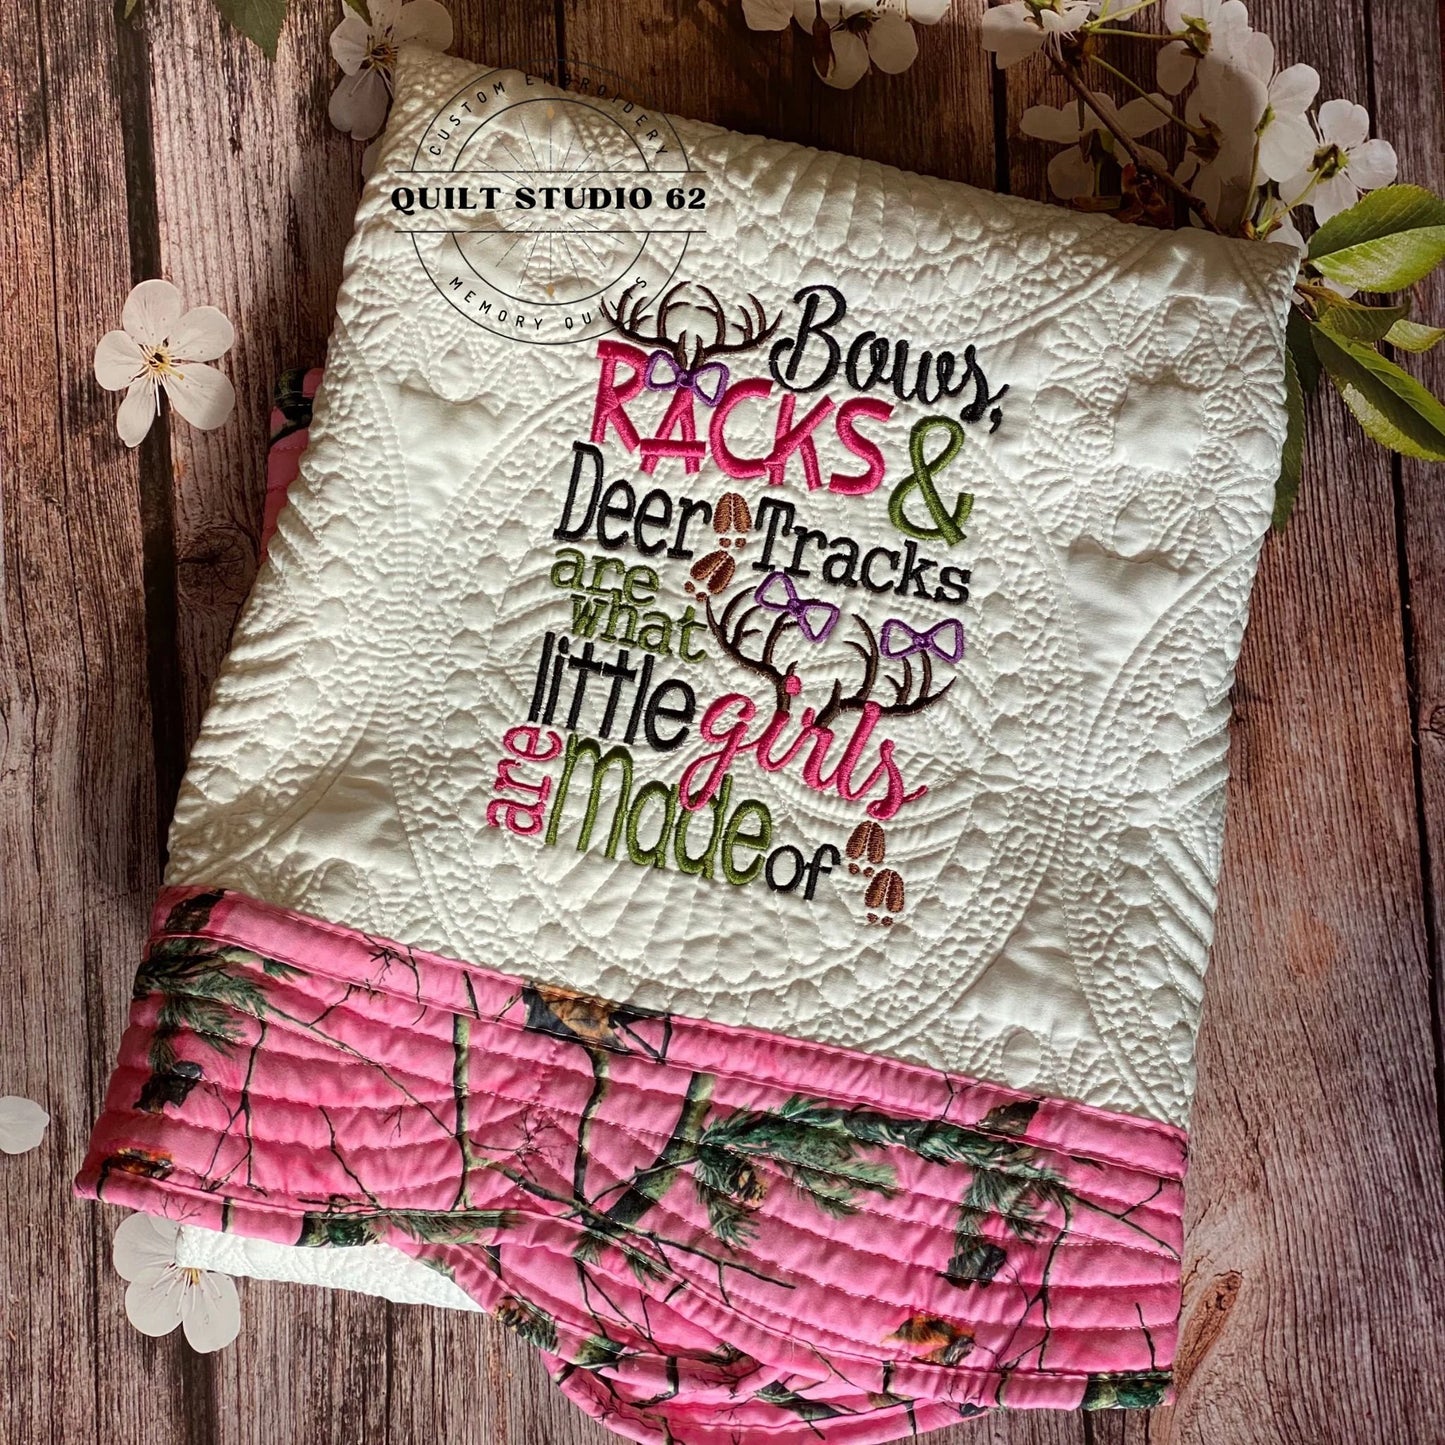 CUSTOM EMBROIDERY
QUILT STUDIO 62
MEMORY QUILTS
Bows,
RACKS &
Deer Tracks
are
what
little girls
are made of